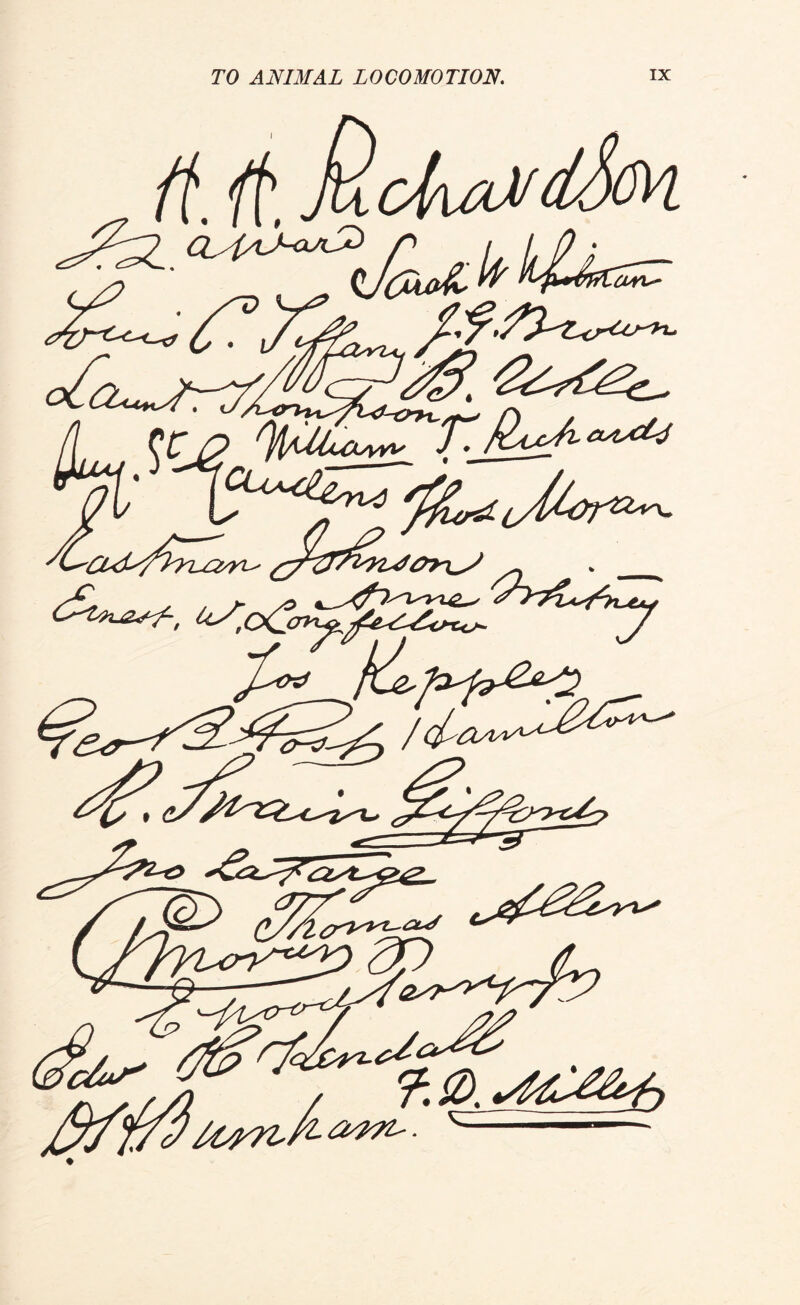 TO ANIMAL LOCOMOTION. IX
H. H. Richardson
J. Q. A. Ward
Sarah W Whitman
Louis C. Tiffany
J. G. Brown
Launt. Thompson
B. Uhle
William T. Richards
Aug. St Gaudens
Thos Moran
Eastman Johnson
Anne Whitney
Ernest, W, Longfellow
Jos Keppler
Geo B Post
Hamilton
R. Swain Gifford
Jno LaFarge
Thomas Allen
Moran
E Wood Perry Jr
Edw H Kendall
F. D. Millet
D H Burnham.